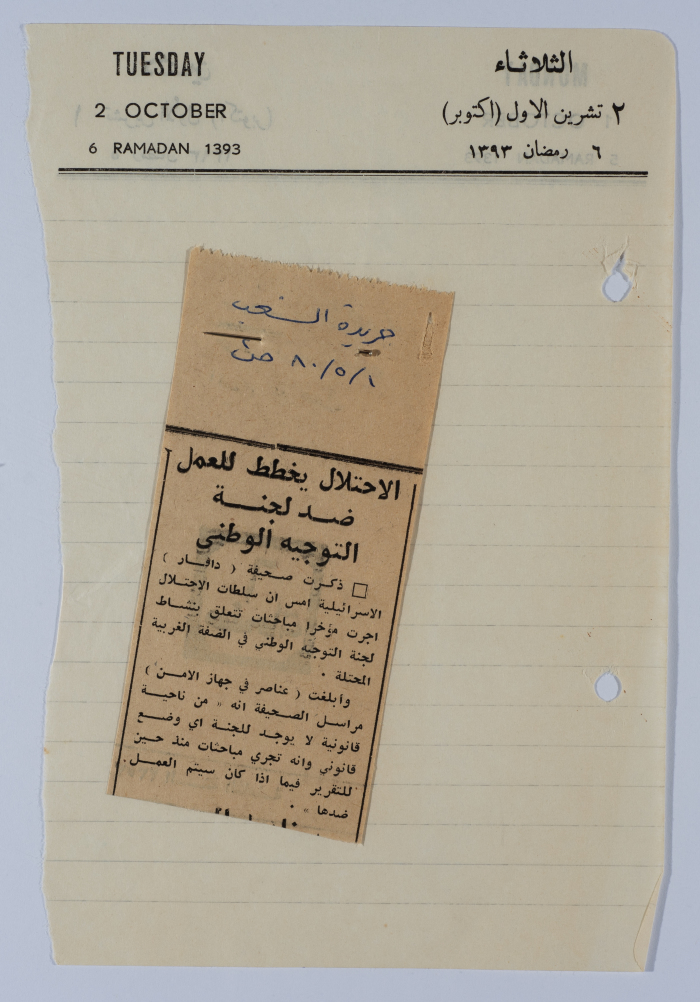 TUESDAY
2 OCTOBER
6 RAMADAN 1393
الثلاثاء
٢ تشرين الاول (اكتوبر)
٦ رمضان ١٣٩٣
جريدة الشعب
٨٠/٥/١
الاحتلال يخطط للعمل
ضد لجنة
التوجيه الوطني
□ ذكرت صحيفة ( دافار )
الاسرائيلية امس ان سلطات الاحتلال
اجرت مؤخرا مباحثات تتعلق بنشاط
لجنة التوجيه الوطني في الضفة الغربية
المحتلة .
وأبلغت ( عناصر في جهاز الامن )
مراسل الصحيفة انه « من ناحية
قانونية لا يوجد للجنة اي وضع
قانوني وانه تجري مباحثات منذ حين
للتقرير فيما اذا كان سيتم العمل
ضدها » .